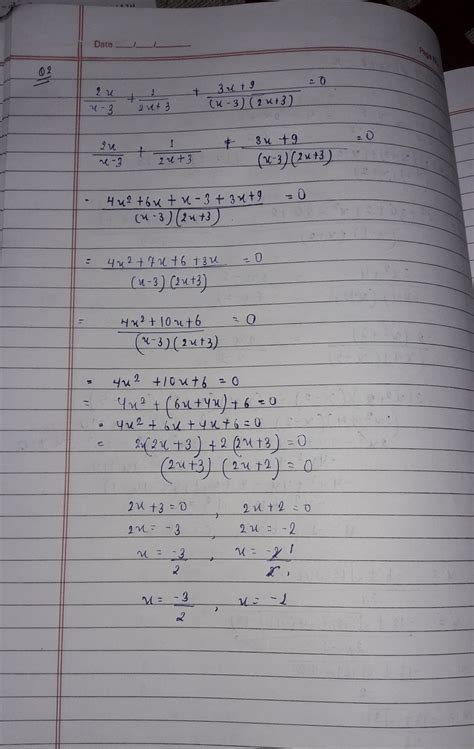 Date ___/___/___
Page No.
Q2
2x/(x-3) + 1/(2x+3) + (3x+9)/((x-3)(2x+3)) = 0
2x/(x-3) + 1/(2x+3) + (3x+9)/((x-3)(2x+3)) = 0
= (4x²+6x+x-3+3x+9)/((x-3)(2x+3)) = 0
= (4x²+7x+6+3x)/((x-3)(2x+3)) = 0
= (4x²+10x+6)/((x-3)(2x+3)) = 0
= 4x² + 10x + 6 = 0
= 4x² + (6x+4x) + 6 = 0
= 4x² + 6x + 4x + 6 = 0
= 2x(2x+3) + 2(2x+3) = 0
(2x+3) (2x+2) = 0
2x+3 = 0 , 2x+2 = 0
2x = -3 , 2x = -2
x = -3/2 , x = -2/2 1 1
x = -3/2 , x = -1